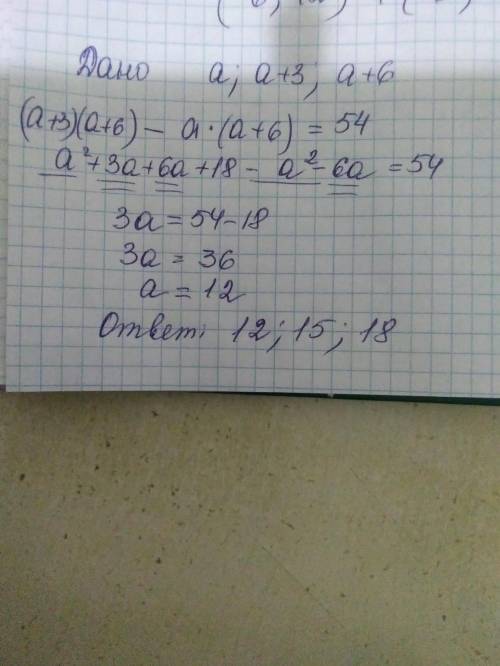 Дано a; a+3; a+6
(a+3)(a+6) – a·(a+6) = 54
a²+3a+6a+18 – a²–6a = 54
3a = 54–18
3a = 36
a = 12
Ответ: 12; 15; 18